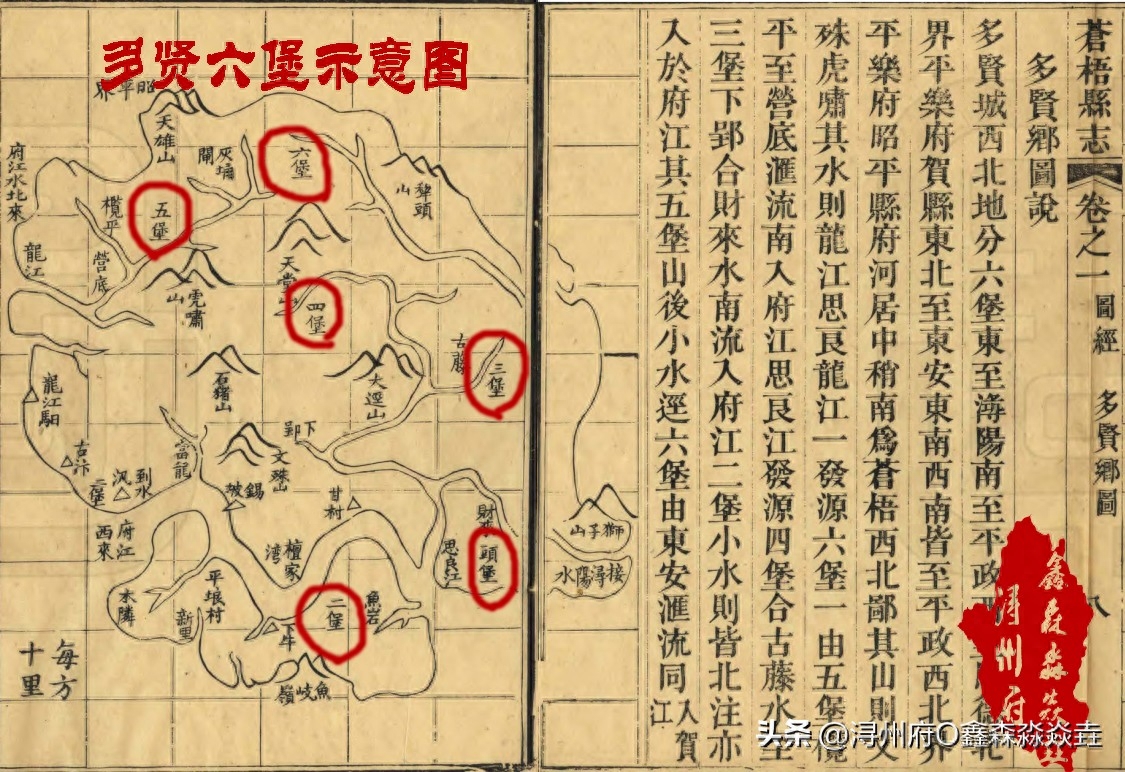 多贤六堡示意图
蒼梧縣志 卷之一 圖經 多賢鄉圖 八
多賢鄉圖說
多賢城西北地分六堡東至潯陽南至平政西 北
界平樂府賀縣東北至東安東南西南皆至平政西北界
平樂府昭平縣府河居中稍南爲蒼梧西北鄙其山則文
殊虎嘯其水則龍江思艮龍江一發源六堡一由五堡欖
平至營底滙流南入府江思艮江發源四堡合古藤水至
三堡下郢合財來水南流入府江二堡小水則皆北注亦
入於府江其五堡山後小水逕六堡由東安滙流同入賀江
昭平界
天雄山
灰塘閘
六堡
犂頭山
府江水北來
欖平
五堡
龍江
營底
虎嘯山
天堂山
四堡
古藤
三堡
石豬山
大逕山
龍江馹
下郢
文殊山
當龍
古汴
二堡
到水汛
錫坡
甘村
財來
頭堡
思良江
府江西來
檀家湾
平埌村
木隣
新里
下牛
二堡
魚岩
魚岐嶺
獅子山
接潯陽水
每方十里
鑫森淼焱垚
浔州府
头条 @浔州府O鑫森淼焱垚